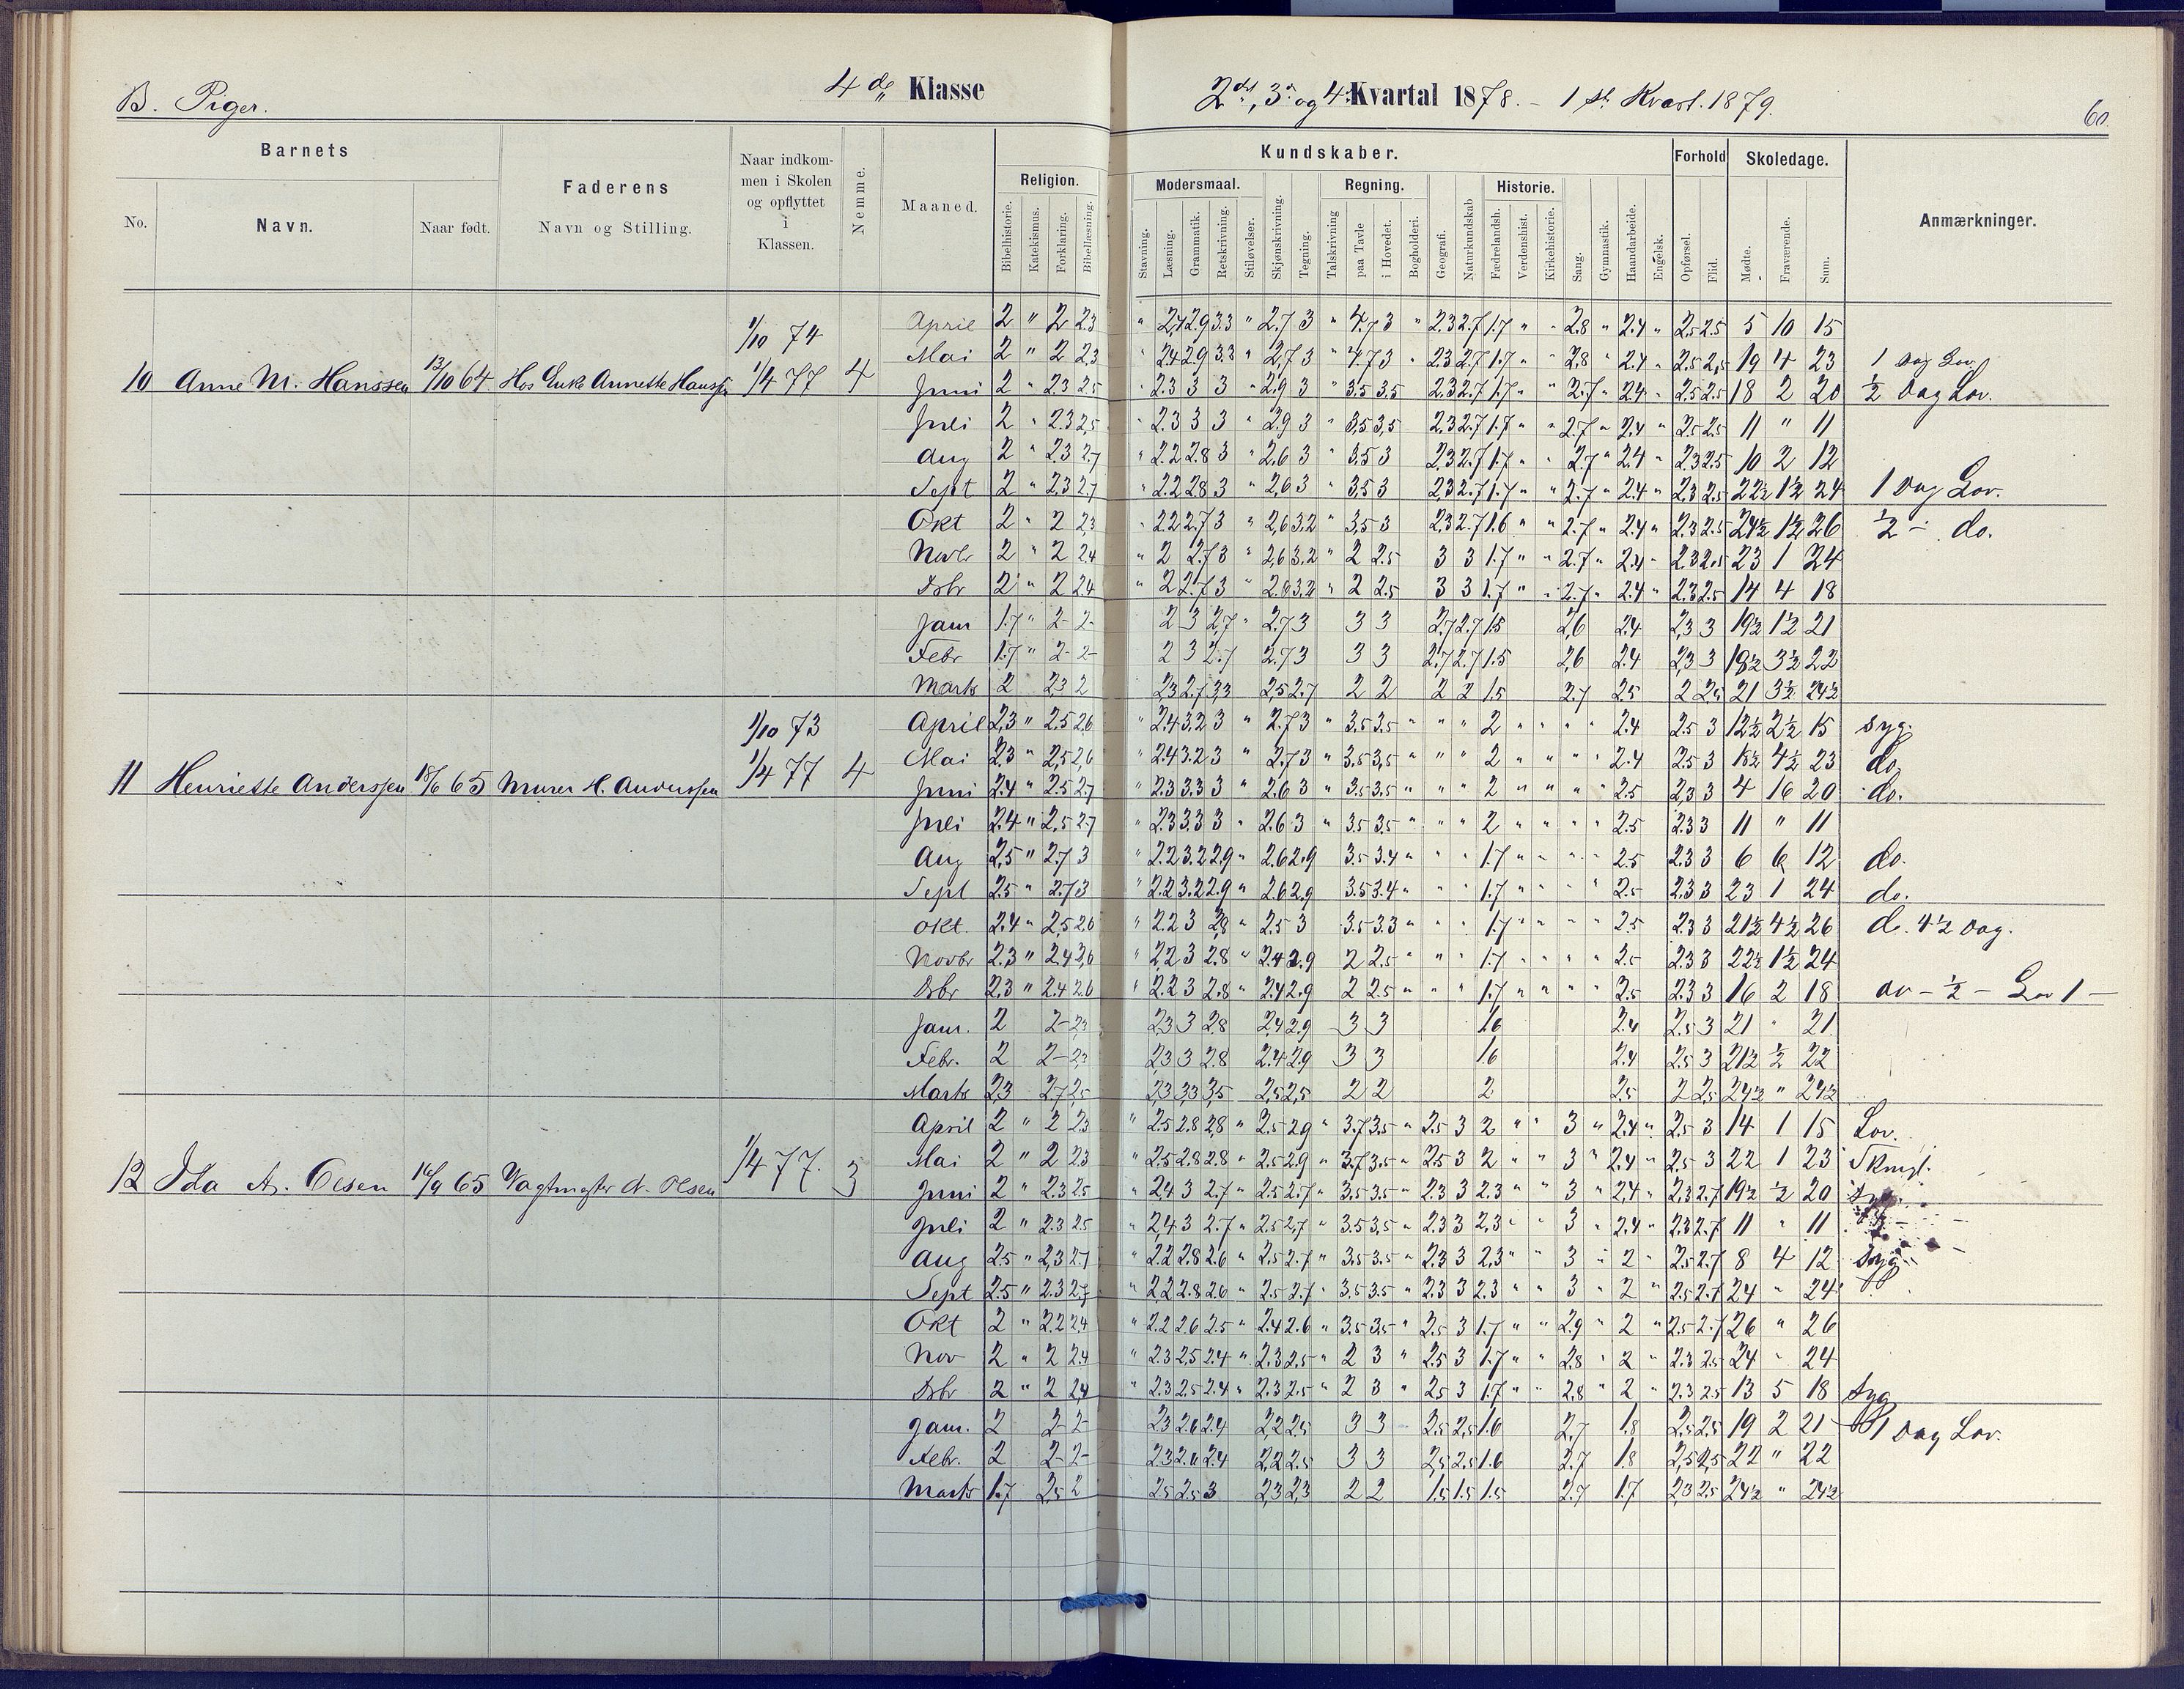 B. Piger.
4de Klasse
2det, 3die og 4. Kvartal 1878. – 1ste Kvart. 1879.
60
Barnets
No.
Navn.
Naar født.
Faderens
Navn og Stilling.
Naar indkom-
men i Skolen
og opflyttet
i
Klassen.
Nemme.
Maaned.
Religion.
Bibelhistorie.
Katekismus.
Forklaring.
Bibellæsning.
Kundskaber.
Modersmaal.
Stavning.
Læsning.
Grammatik.
Retskrivning.
Stiløvelser.
Skjønskrivning.
Tegning.
Regning.
Talskrivning
paa Tavle
i Hovedet.
Bogholderi.
Geografi.
Naturkundskab
Historie.
Fædrelandsh.
Verdenshist.
Kirkehistorie.
Sang.
Gymnastik.
Haandarbeide.
Engelsk.
Forhold
Opførsel.
Flid.
Skoledage.
Mødte.
Fraværende.
Sum.
Anmærkninger.
10 Anne M. Hanssen 13/10 64 Hos Enke Annette Hanssen 1/10 74 1/4 77 4
April 2 " 2 2.3 " 2.4 2.9 3.3 " 2.7 3 " 4.7 3 " 2.3 2.7 1.7 " " 2.8 " 2.4 " 2.5 2.5 5 10 15
Mai 2 " 2 2.3 " 2.4 2.9 3.3 " 2.7 3 " 4.7 3 " 2.3 2.7 1.7 " " 2.8 " 2.4 " 2.5 2.5 19 4 23 1 Dag Lov.
Juni 2 " 2.3 2.5 " 2.3 3 3 " 2.9 3 " 3.5 3.5 2.3 2.7 1.7 " " 2.7 " 2.4 " 2.5 2.5 18 2 20 ½ Dag Lov.
Juli 2 " 2.3 2.5 " 2.3 3 3 " 2.9 3 " 3.5 3.5 2.3 2.7 1.7 " " 2.7 " 2.4 " 2.5 2.5 11 " 11
Aug 2 " 2.3 2.7 " 2.2 2.8 3 " 2.6 3 " 3.5 3 2.3 2.7 1.7 " " 2.7 " 2.4 " 2.3 2.5 10 2 12
Sept 2 " 2.3 2.7 " 2.2 2.8 3 " 2.6 3 " 3.5 3 2.3 2.7 1.7 " " 2.7 " 2.4 " 2.3 2.5 22½ 1½ 24 1 Dag Lov.
Okt 2 " 2 2.3 " 2.2 2.7 3 " 2.6 3.2 " 3.5 3 2.3 2.7 1.6 " " 2.7 " 2.4 " 2.3 2.5 24½ 1½ 26 ½ – do.
Novbr 2 " 2 2.4 " 2 2.7 3 " 2.6 3.2 " 2 2.5 3 3 1.7 " " 2.7 " 2.4 " 2.3 2.5 23 1 24
Dsbr 2 " 2 2.4 " 2 2.7 3 " 2.6 3.2 " 2 2.5 3 3 1.7 " " 2.7 " 2.4 " 2.3 2.5 14 4 18
Janr 1.7 " 2 2 2 3 2.7 " 2.7 3 3 3 2.7 2.7 1.5 2.6 2.4 2.3 3 19½ 1½ 21
Febr 1.7 " 2 2 2 3 2.7 2.7 3 3 3 2.7 2.7 1.5 2.6 2.4 2.3 3 18½ 3½ 22
Marts 2 2.3 2 2.3 2.7 3.3 2.5 2.7 2 2 2 2 1.5 2.7 2.5 2 2.5 21 3½ 24½
11 Henriette Anderssen 18/6 65 Murer H. Anderssen 1/10 73 1/4 77 4
April 2.3 " 2.5 2.6 " 2.4 3.2 3 " 2.7 3 " 3.5 3.5 " " " 2 " " " " 2.4 2.5 3 12½ 2½ 15 syg.
Mai 2.3 " 2.5 2.6 " 2.4 3.2 3 " 2.7 3 " 3.5 3.5 " " " 2 " " " " 2.4 2.5 3 18½ 4½ 23 do.
Juni 2.4 " 2.5 2.7 " 2.3 3.3 3 " 2.6 3 " 3.5 3.5 " " " 2 " " " " 2.5 2.3 3 4 16 20 do.
Juli 2.4 " 2.5 2.7 " 2.3 3.3 3 " 2.6 3 " 3.5 3.5 " " " 2 " " " " 2.5 2.3 3 11 " 11
Aug 2.5 " 2.7 3 " 2.2 3.2 2.9 " 2.6 2.9 3.5 3.4 " " " 1.7 " " " " 2.5 2.3 3 6 6 12 do.
Sept 2.5 " 2.7 3 " 2.2 3.2 2.9 " 2.6 2.9 3.5 3.4 " " " 1.7 " " " " 2.5 2.3 3 23 1 24 do.
Okt. 2.4 " 2.5 2.6 " 2.2 3 2.8 " 2.5 3 3.5 3.3 " " " 1.7 " " " " 2.5 2.3 3 21½ 4½ 26 do. 4½ Dag.
Novbr 2.3 " 2.4 2.6 " 2.2 3 2.8 " 2.4 2.9 2 2.5 " " " 1.7 " " " " 2.5 2.3 3 22½ 1½ 24
Dsbr 2.3 " 2.4 2.6 " 2.2 3 2.8 " 2.4 2.9 2 2.5 " " " 1.7 " " " " 2.5 2.3 3 16 2 18 do – ½ – Lov 1 –
Janr. 2 2 2.3 2.3 3 2.8 2.4 2.9 3 3 1.6 2.4 2.5 3 21 " 21
Febr. 2 2 2.3 2.3 3 2.8 2.4 2.9 3 3 1.6 2.4 2.5 3 21½ ½ 22
Marts 2.3 2.7 2.5 2.3 3.3 3.5 2.5 2.5 2 2 2 2.5 2 2.5 24½ " 24½
12 Ida A. Olsen 14/9 65 Vagtmester N. Olsen 1/4 77. 3
April 2 " 2 2.3 " 2.5 2.8 2.8 " 2.5 2.9 " 3.7 3.5 " 2.5 3 2 " " 3 " 2.4 " 2.5 3 14 1 15 Lov.
Mai 2 " 2 2.3 " 2.5 2.8 2.8 " 2.5 2.9 " 3.7 3.5 " 2.5 3 2 " " 3 " 2.4 " 2.5 3 22 1 23
Juni 2 " 2.3 2.5 " 2.4 3 2.7 " 2.5 2.7 " 3.5 3.5 " 2.3 3 2.3 " " 3 " 2.4 " 2.3 2.7 19½ ½ 20
Juli 2 " 2.3 2.5 " 2.4 3 2.7 " 2.5 2.7 " 3.5 3.5 " 2.3 3 2.3 " " 3 " 2.4 " 2.3 2.7 11 " 11
Aug 2.5 " 2.3 2.7 " 2.2 2.8 2.6 " 2.5 2.7 " 3.5 3.5 " 2.3 3 2.3 " " 3 " 2 " 2.5 2.7 8 4 12 syg
Sept 2.5 " 2.3 2.7 " 2.2 2.8 2.6 " 2.5 2.7 " 3.5 3.5 " 2.3 3 2.3 " " 3 " 2 " 2.5 2.7 24 " 24
Okt 2 " 2.2 2.4 " 2.2 2.6 2.5 " 2.4 2.6 " 3.5 3.5 " 2.5 3 1.7 " " 2.9 " 2 " 2.5 2.7 26 " 26
Nov 2 " 2 2.4 " 2.3 2.5 2.4 " 2.3 2.5 " 2 3 " 2.5 3 1.7 " " 2.8 " 2 " 2.3 2.5 24 " 24
Dsbr 2 " 2 2.4 " 2.3 2.5 2.4 " 2.3 2.5 " 2 3 " 2.5 3 1.7 " " 2.8 " 2 " 2.3 2.5 13 5 18 syg
Janr. 2 2 2 2.3 2.6 2.4 2.2 2.5 3 3 2.5 2.5 1.6 2.7 1.8 2.5 2.5 19 2 21 1 Dag Lov.
Febr. 2 2 2 2.3 2.6 2.4 2.2 2.5 3 3 2.5 2.5 1.6 2.7 1.8 2.5 2.5 22 " 22
Marts 1.7 2.5 2 2.5 2.5 3 2.3 2.3 2 2 1.5 1.5 1.5 2.7 1.7 2.3 2.5 24½ " 24½